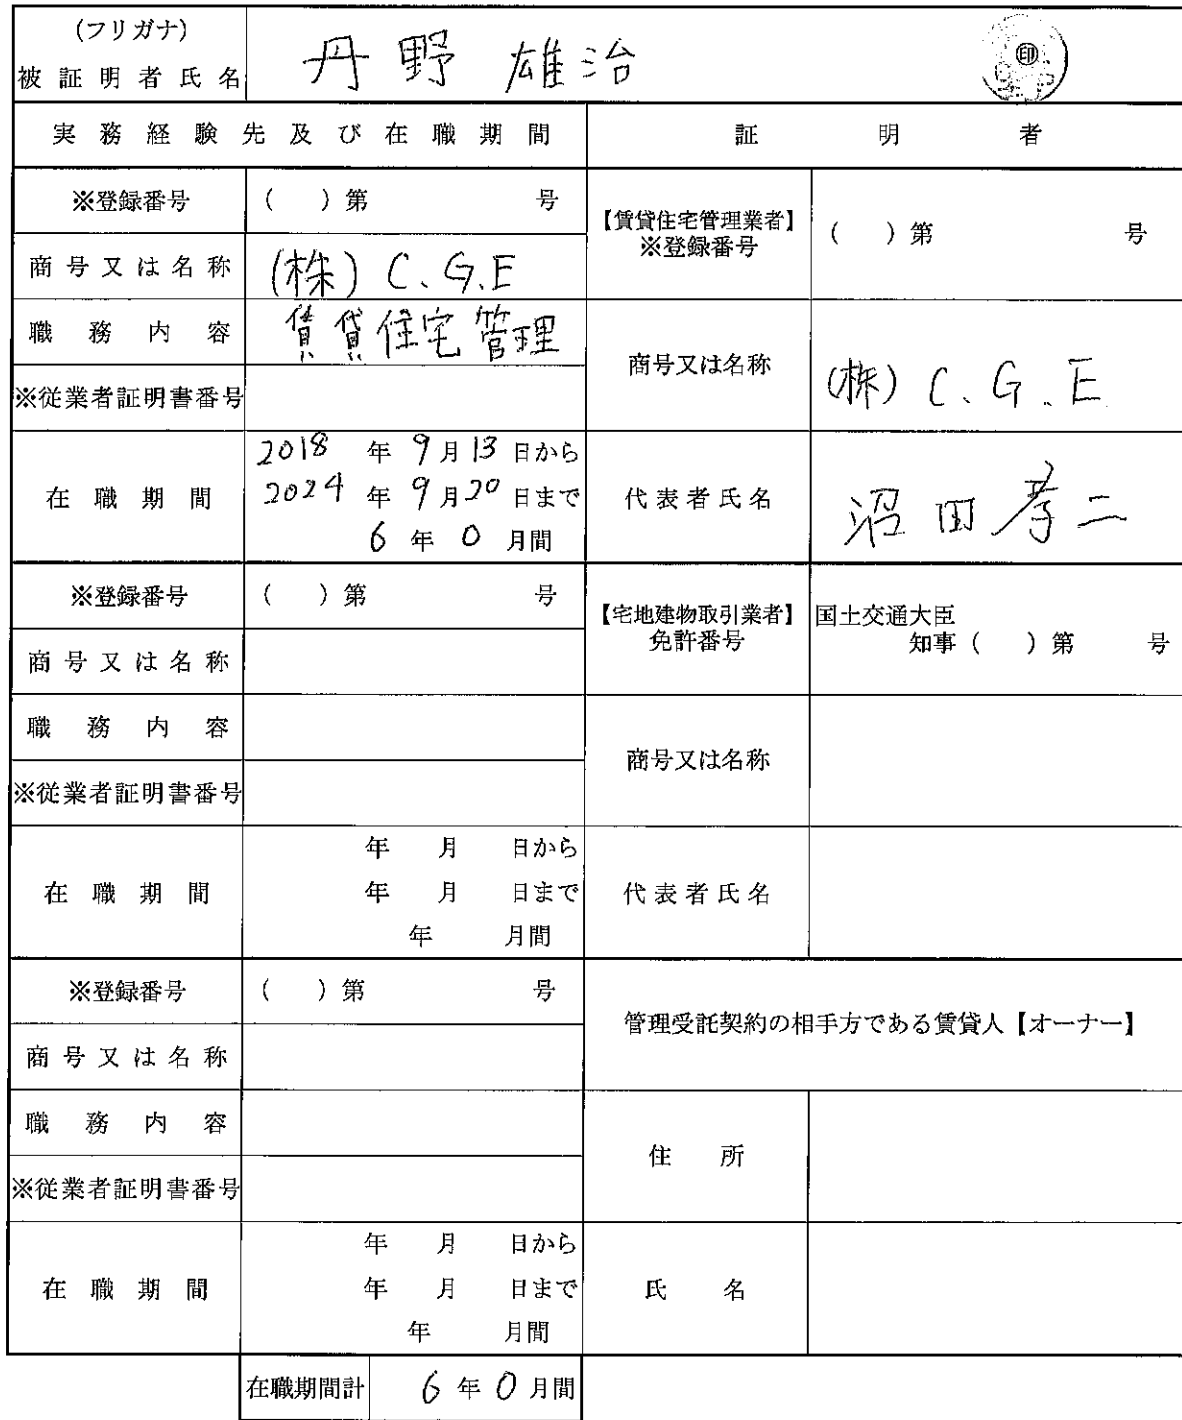 (フリガナ)
被証明者氏名 丹野 雄治 ㊞
実務経験先及び在職期間 証明者
※登録番号 ( )第 号
【賃貸住宅管理業者】
※登録番号 ( )第 号
商号又は名称 (株) C.G.E
職務内容 賃貸住宅管理
商号又は名称 (株) C.G.E
※従業者証明書番号
在職期間
2018 年 9月13 日から
2024 年 9月20 日まで
6 年 0 月間
代表者氏名 沼田孝二
※登録番号 ( )第 号
【宅地建物取引業者】
免許番号
国土交通大臣
知事( )第 号
商号又は名称
職務内容
商号又は名称
※従業者証明書番号
在職期間
年 月 日から
年 月 日まで
年 月間
代表者氏名
※登録番号 ( )第 号
管理受託契約の相手方である賃貸人【オーナー】
商号又は名称
職務内容
住所
※従業者証明書番号
在職期間
年 月 日から
年 月 日まで
年 月間
氏名
在職期間計 6 年 0 月間